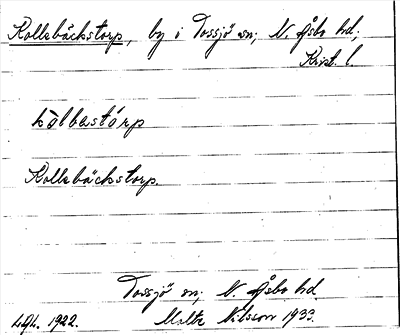 Kollsbäckstorp, by i Tossjö sn; N. Åsbo hd,
Krist. l.
kòlbastórp
Kollsbäckstorp.
Tossjö sn; N. Åsbo hd.
1922. Malte Nilsson 1933.